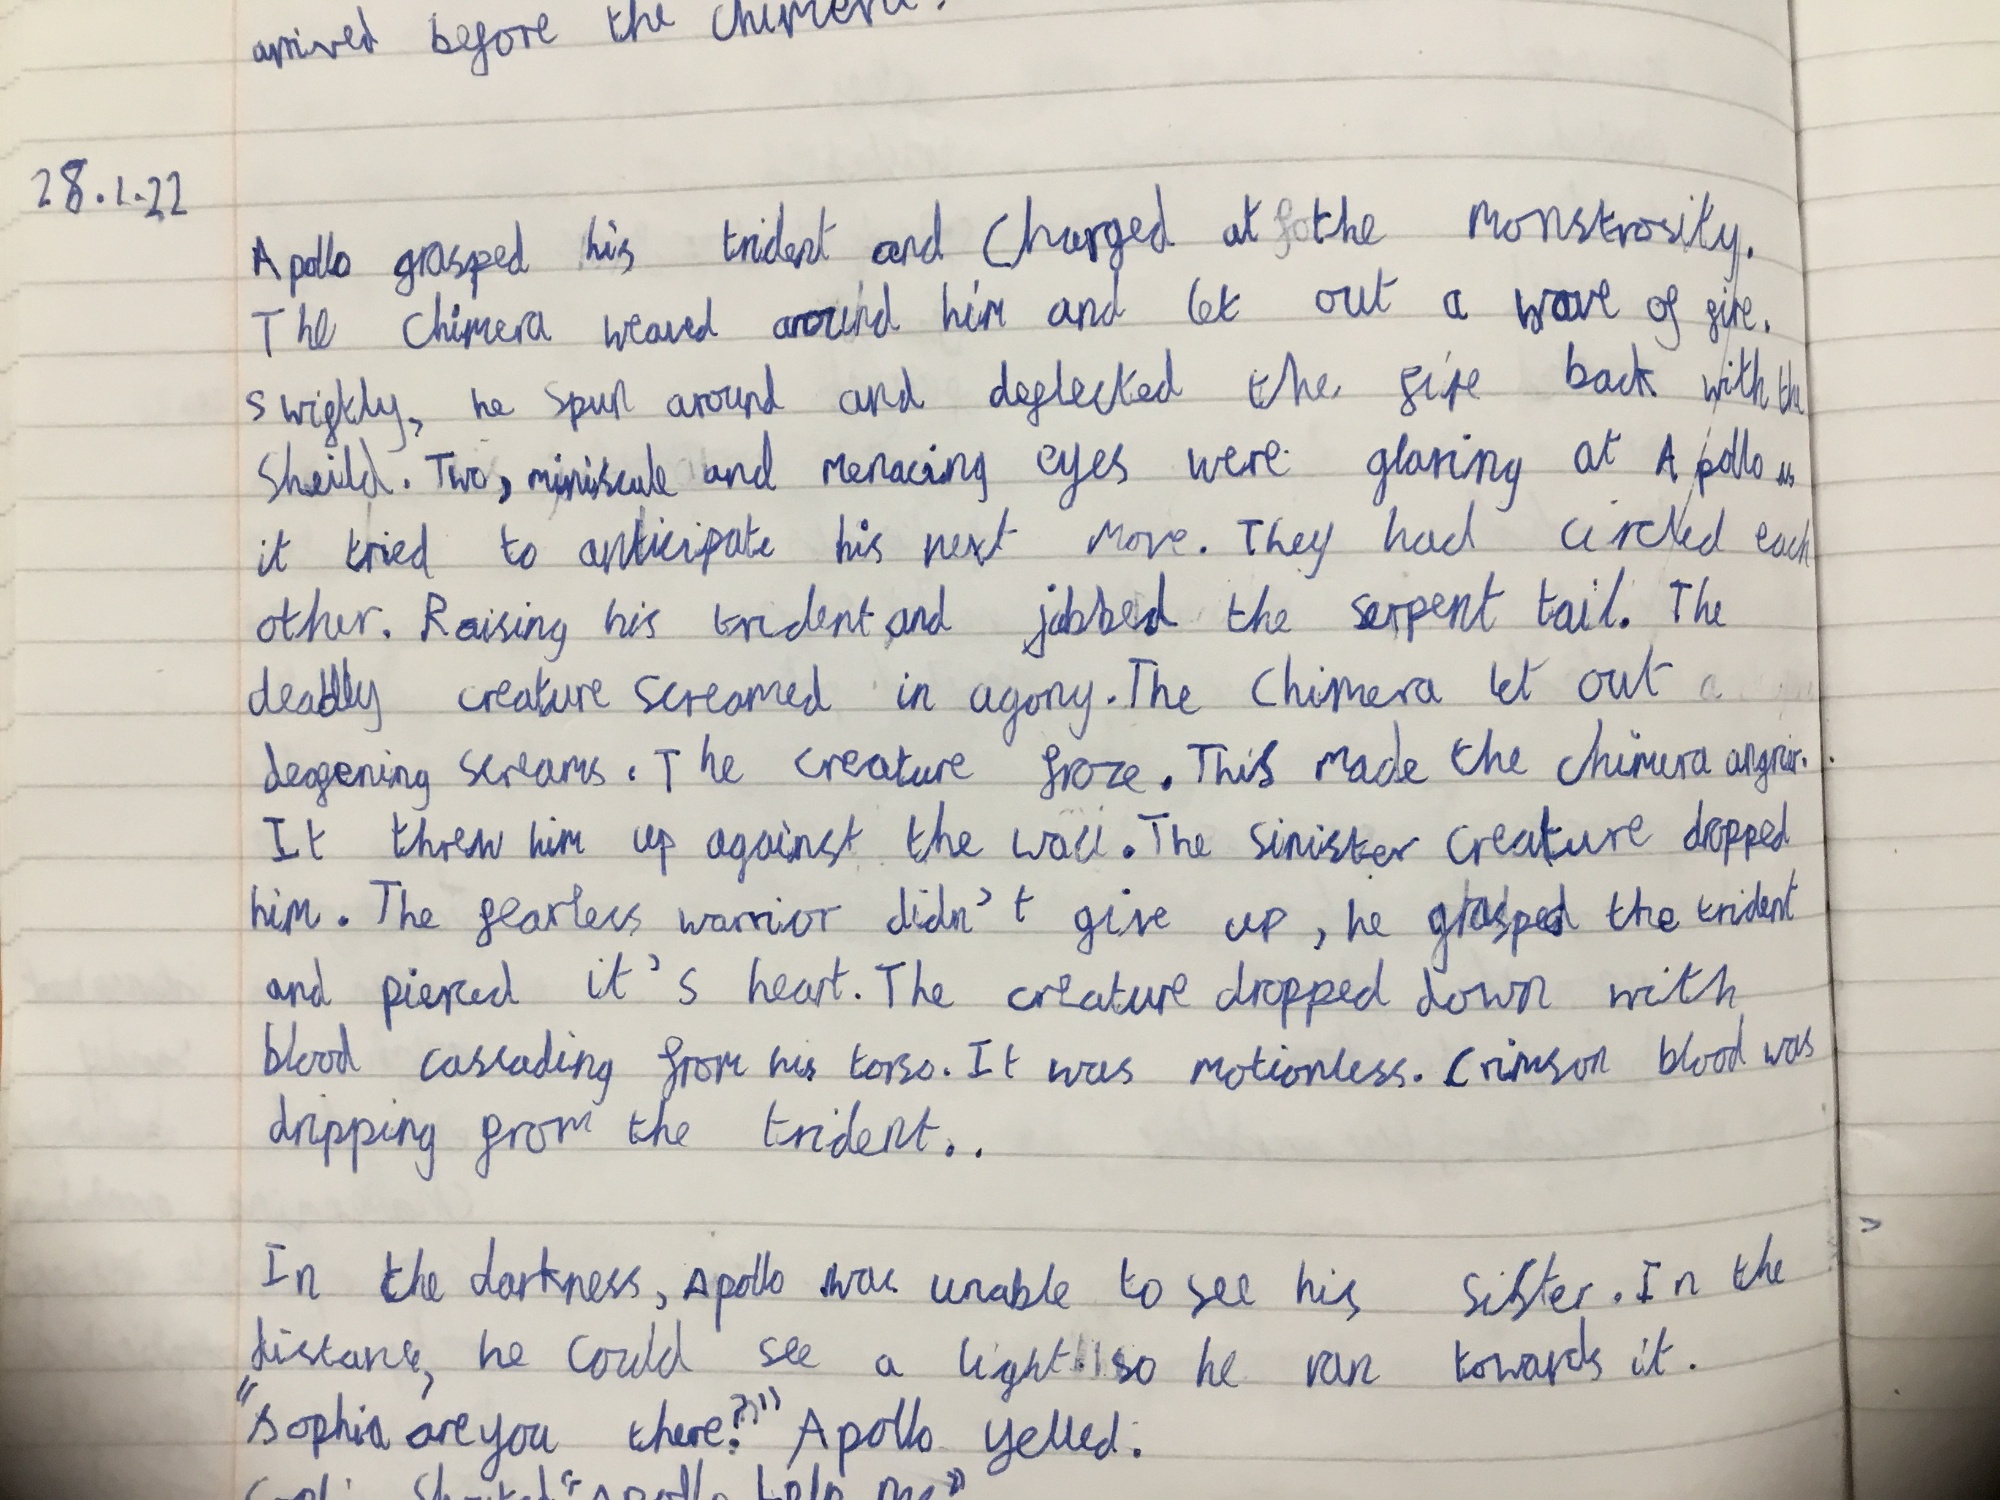 arrived before the chimera.
28.1.22
Apollo grasped his trident and Charged at the monstrosity.
The Chimera weaved around him and let out a wave of fire.
swiftly, he spun around and deflected the fire back with the
Sheild. Two, miniscule and menacing eyes were glaring at Apollo as
it tried to anticipate his next move. They had circled each
other. Raising his trident and jabbed the serpent tail. The
deadly creature screamed in agony. The Chimera let out a
deafening screams. The creature froze. This made the chimera angrier.
It threw him up against the wall. The sinister creature dropped
him. The fearless warrior didn't give up, he grasped the trident
and pierced it's heart. The creature dropped down with
blood cascading from his torso. It was motionless. Crimson blood was
dripping from the trident..
In the darkness, Apollo was unable to see his sister. In the
distance, he could see a light so he ran towards it.
"Sophia are you there?" Apollo yelled.
Shouted "Apollo help me"